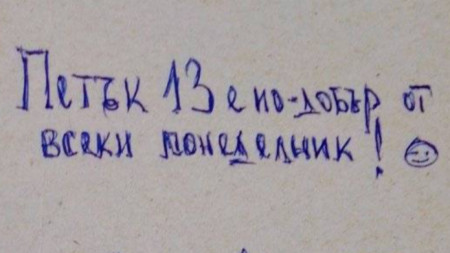 Петък 13 е по-добър от
всеки понеделник! ☺